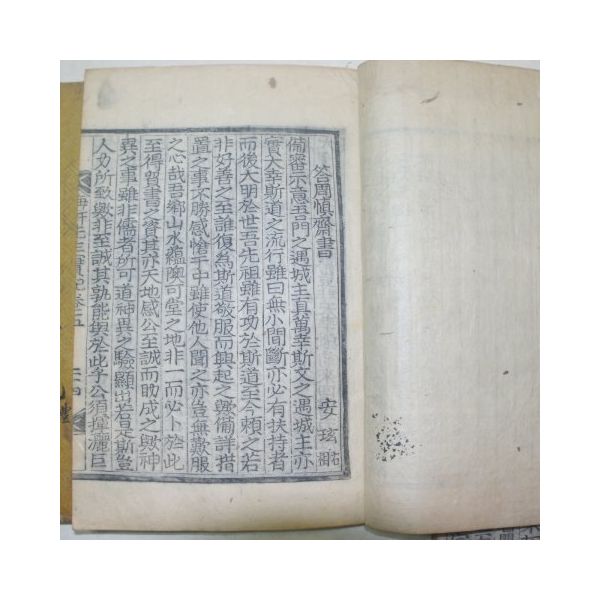 答周愼齋書
安玹 判書
備審示意吾門之遇城主眞萬幸斯文之遇城主亦
實大幸斯道之流行雖曰無小間斷亦必有扶持者
而後大明於世吾先祖雖有功於斯道至今賴之若
非好善之至誰復爲斯道敬服而興起之與備詳措
置之事欣勝感愴于中雖使他人聞之亦豈無歎服
之心哉吾鄕山水蘊腕可堂之地非一而必卜於此
至得習書之資其亦天地感公至誠而助成之與神
異之事雖非儒者所可道神異之驗顯出若是斯豈
人力所致與非至誠其孰能與於此乎公須揮灑巨
先生實記卷之五 二十四